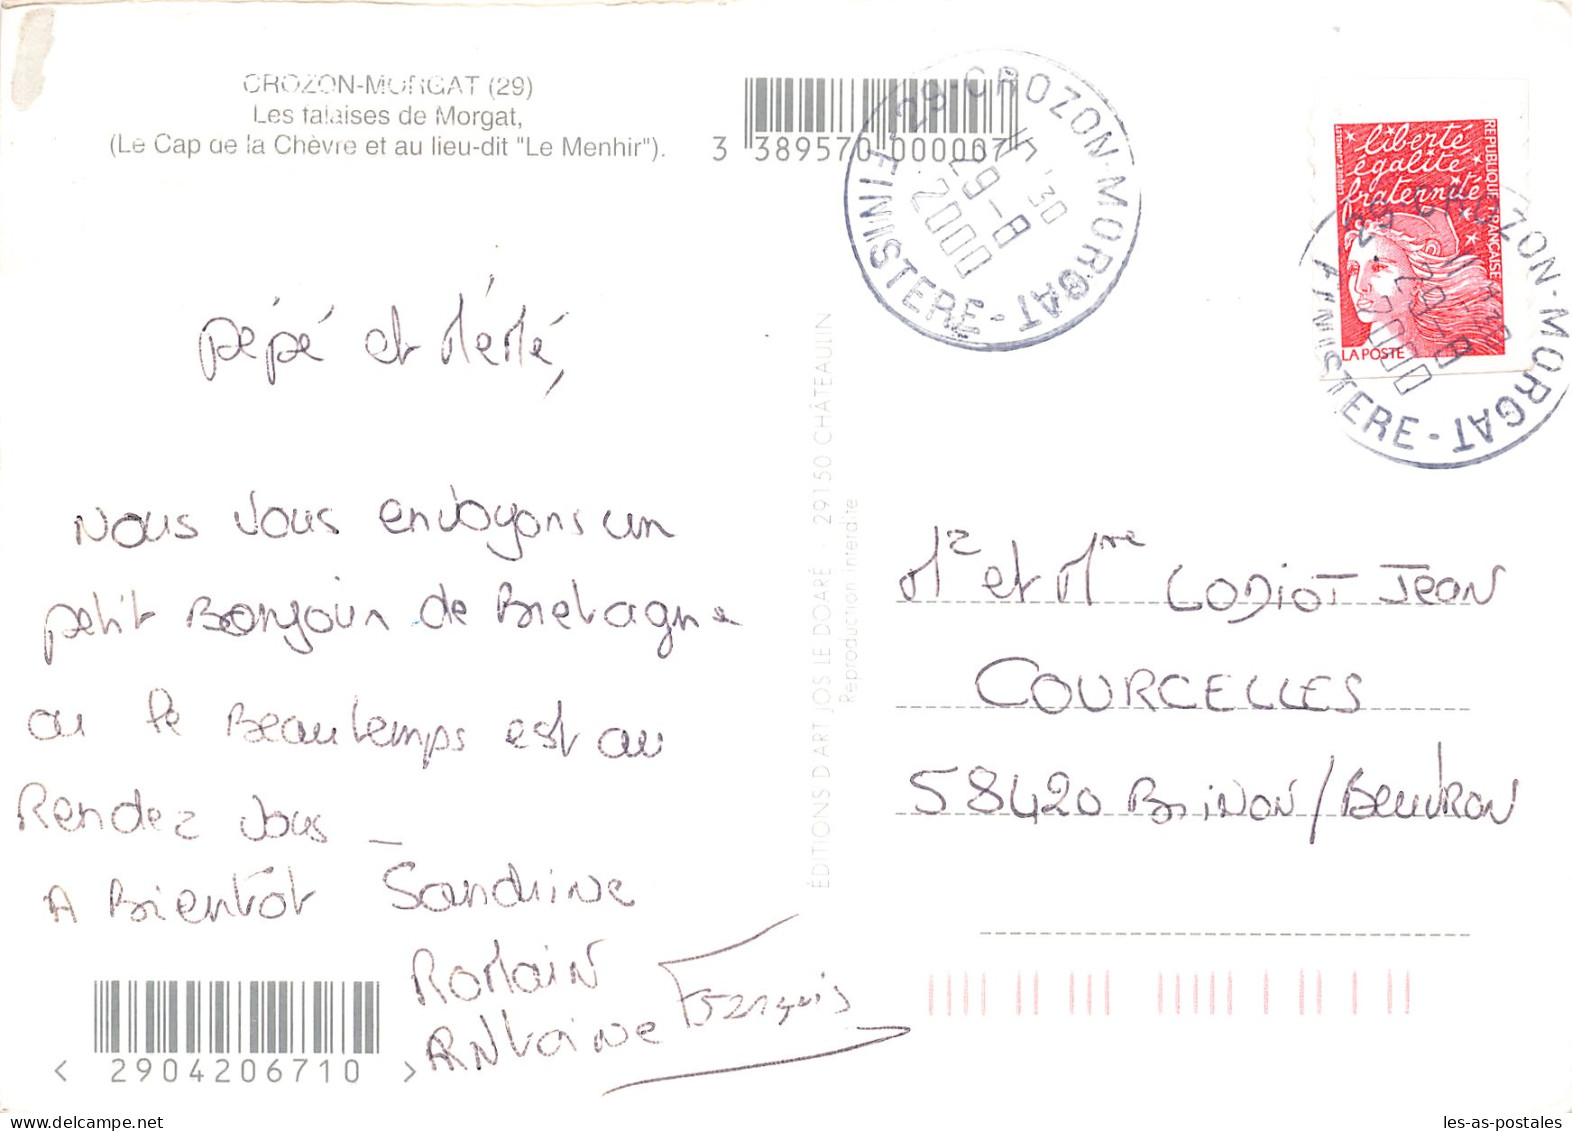 CROZON-MORGAT (29)
Les falaises de Morgat,
(Le Cap de la Chèvre et au lieu-dit "Le Menhir").
3 389570 000067
29-CROZON-MORGAT
29-8
2000
FINISTERE
liberté
égalité
fraternité
REPUBLIQUE FRANÇAISE
LA POSTE
29 CROZON-MORGAT
29-8
2000
FINISTERE
pépé et Mémé,
Nous vous envoyons un
petit Bonjour de Bretagne
ou le Beautemps est au
Rendez vous _
A Bientôt Sandrine
Romain
Antoine François
< 2904206710 >
ÉDITIONS D'ART JOS LE DOARÉ - 29150 CHÂTEAULIN
Reproduction interdite
Mr et Mme LODIOT Jean
COURCELLES
58420 BRINON/BEUVRON
les-as-postales